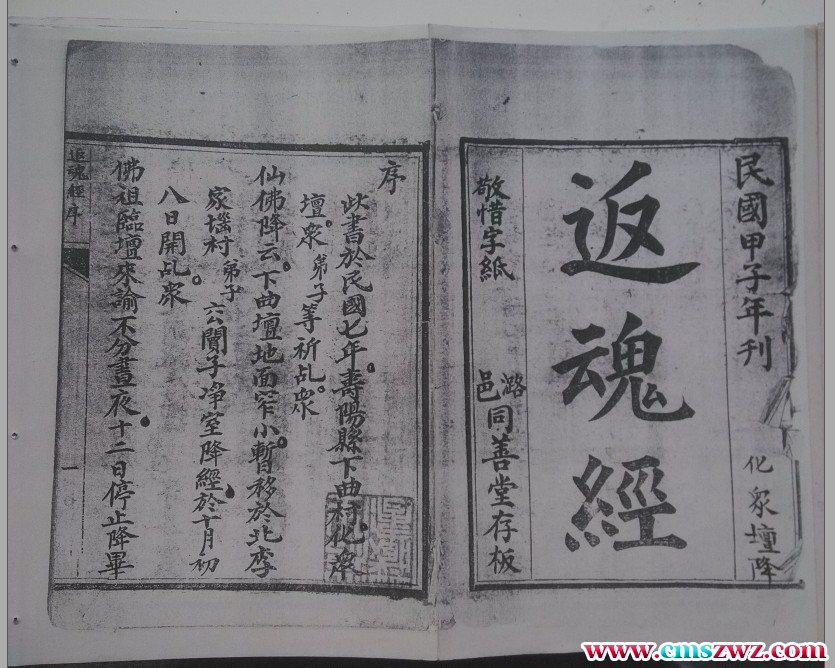 民國甲子年刊
化眾壇降
返魂經
敬惜字紙
潞邑同善堂存板
序
此書於民國七年。壽陽縣下曲村化眾
壇。眾弟子等祈乩。眾
仙佛降云。下曲壇地面窄小。暫移於北李
家墕村弟子公閤子凈室降經。於十月初
八日開乩。眾
佛祖臨壇來諭不分晝夜。十二日停止降畢
返魂經序
一
www.cmszwz.com